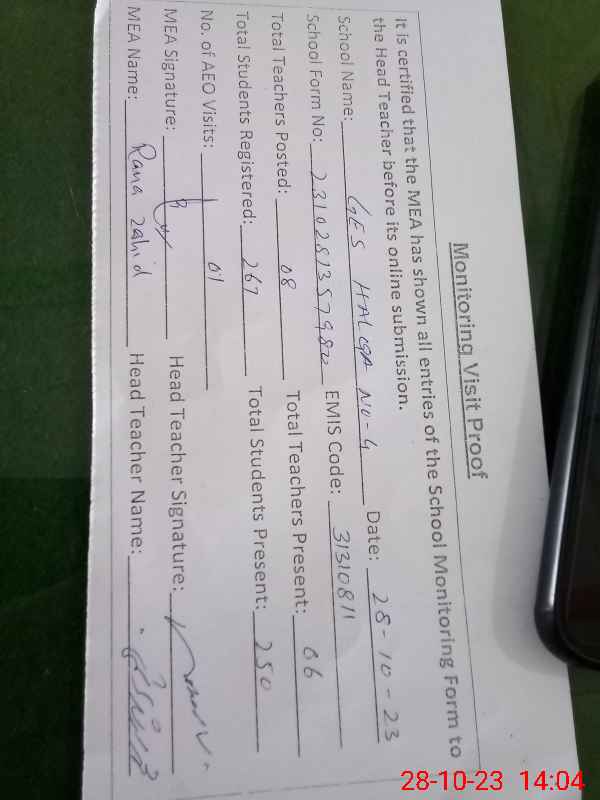 Monitoring Visit Proof
It is certified that the MEA has shown all entries of the School Monitoring Form to
the Head Teacher before its online submission.
School Name: GES HALQA NO-4 Date: 28-10-23
School Form No: EMIS Code: 31310811
Total Teachers Posted: 08 Total Teachers Present: 06
Total Students Registered: 267 Total Students Present: 250
No. of AEO Visits: 01
MEA Signature: Head Teacher Signature:
MEA Name: Rana Zahid Head Teacher Name:
28-10-23 14:04